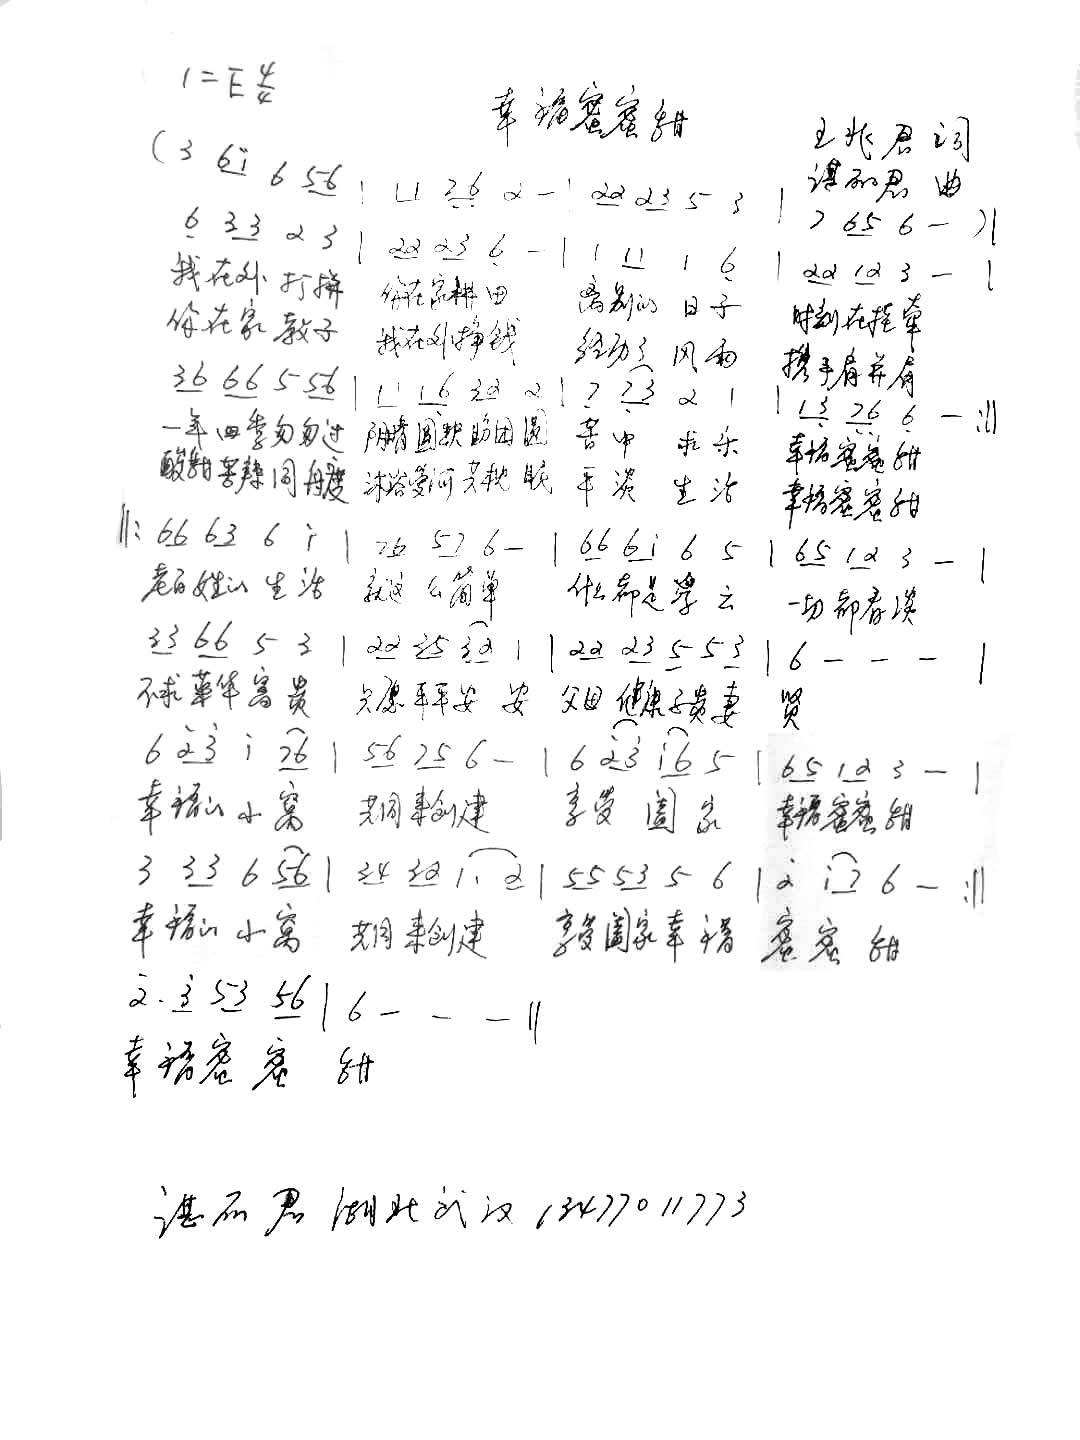 1=E 4/4
幸福蜜蜜甜
王兆君 词
谌 君 曲
(3 6i 6 56 | 11 76 2 - | 22 23 5 3 | 7 65 6 - )|
6 33 2 3 | 22 23 6 - | 1 11 1 6 | 22 12 3 - |
我在外打拼 你在家耕田 离别的日子 时刻在挂牵
你在家教子 我在外挣钱 经历了风雨 携手肩并肩
36 66 5 56 | 11 16 32 2 | 7 73 2 1 | 13 76 6 - :||
一年四季匆匆过 阴晴圆缺盼团圆 苦中求乐 幸福蜜蜜甜
酸甜苦辣同舟度 沐浴爱河共枕眠 平淡生活 幸福蜜蜜甜
||: 66 63 6 i | 76 57 6 - | 66 6i 6 5 | 65 12 3 - |
老百姓的生活 就这么简单 什么都是浮云 一切都看淡
33 66 5 3 | 22 35 32 1 | 22 23 5 53 | 6 - - - |
不求荣华富贵 只愿平平安安 父母健康子贵妻 贤
6 23 i 76 | 56 75 6 - | 6 23 i6 5 | 65 12 3 - |
幸福的小窝 共同来创建 享受阖家 幸福蜜蜜甜
3 33 6 56 | 34 32 1. 2 | 55 53 5 6 | 2 i7 6 - :||
幸福的小窝 共同来创建 享受阖家幸福 蜜蜜甜
2. 3 53 56 | 6 - - - ||
幸福蜜蜜 甜
谌 君 湖北武汉 13477011773